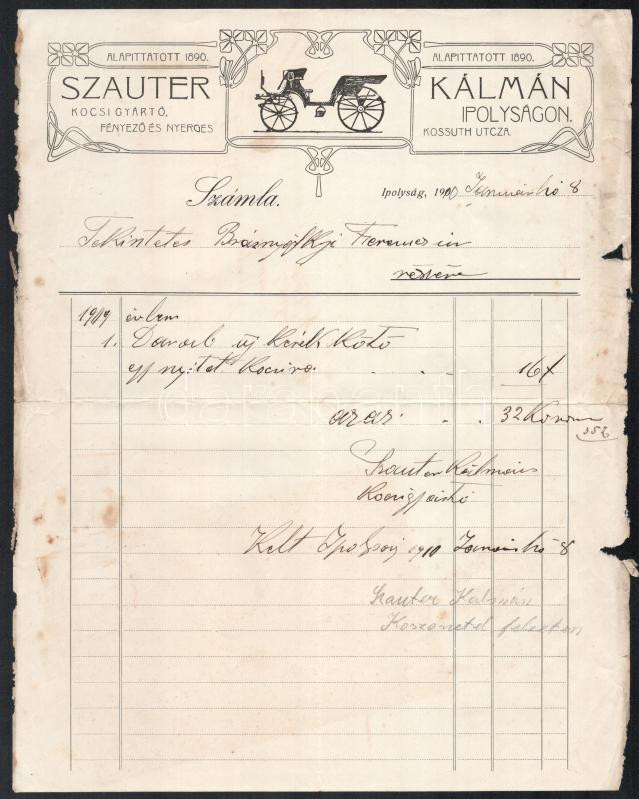 ALAPITTATOTT 1890.
SZAUTER
KOCSIGYÁRTÓ,
FÉNYEZŐ ÉS NYERGES
ALAPITTATOTT 1890.
KÁLMÁN
IPOLYSÁGON.
KOSSUTH UTCZA.
Számla.
Ipolyság, 1910 Januárhó 8
Tekintetes Ferencz
részére
1909 évben
1. Darab új kerék
egy nyitot kocsira 16f
darabanth
32 Korona
Szauter Kálmán
Kocsigyártó
Kelt Ipolyság 1910 Januárhó 8
Szauter Kálmán